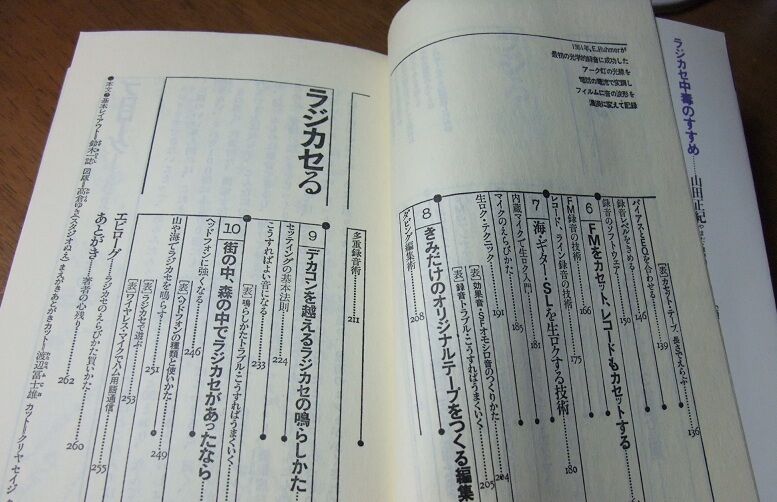 ラジカセ中毒のすすめ……山田正紀
1901年、E.Ruhmerが
最初の光学的録音に成功した
アーク灯の光線を
電話の電流で変調し
フィルムに音の波形を
濃淡に変えて記録
[表]カセットテープ、長さでえらぶ……136
バイアス・EQを合わせる……139
録音レベルをきめる……146
録音のソフトウェアー……150
6 FMをカセット、レコードもカセットする
FM録音の技術……166
レコード、ライン録音の技術……175
7 海・ギター・SLを生ロクする技術……180
内蔵マイクで生ロク入門……181
マイクのえらびかた……185
生ロク・テクニック……191
[表]効果音・SFオモシロ音のつくりかた……204
[表]録音トラブル・こうすればうまくいく……205
8 きみだけのオリジナルテープをつくる編集
ダビング編集術……208
多重録音術……211
ラジカセる
9 デカコンを越えるラジカセの鳴らしかた
セッティングの基本法則……224
こうすればよい音になる……233
[表]鳴らしかたトラブル・こうすればうまくいく
10 街の中・森の中でラジカセがあったなら
ヘッドフォンに強くなる……246
[表]ヘッドフォンの種類と使いかた……249
山や海でラジカセを鳴らす……251
[表]ラジカセで遊ぶ……253
[表]ワイヤレス・マイクでハム用語通信……255
エピローグ……ラジカセのえらびかた買いかた……260
あとがき……著者の心残り……262
●本文・基本レイアウト―鈴木一誌 図版―高倉ゆき(スタジオぬえ) まえがき・あとがきカット―渡辺冨士雄 カット―クリヤセイジ